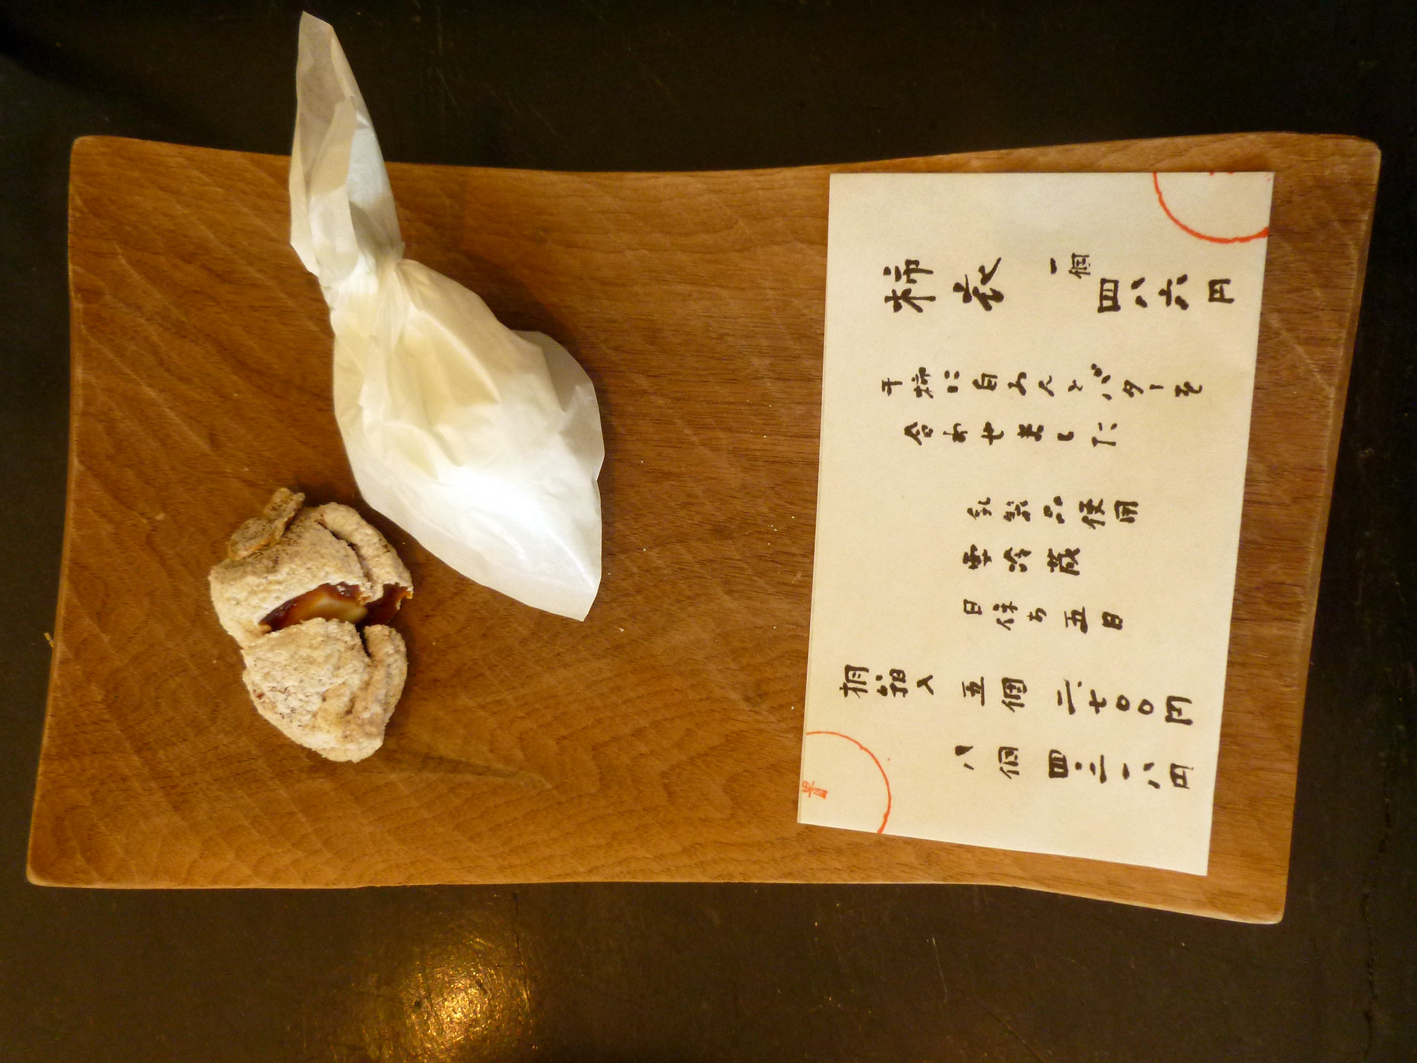 柿衣
一個 四八六円
干柿に白あんとバターを
合わせました
乳製品使用
要冷蔵
日保ち五日
桐箱入 五個 二七〇〇円
八個 四三一八円